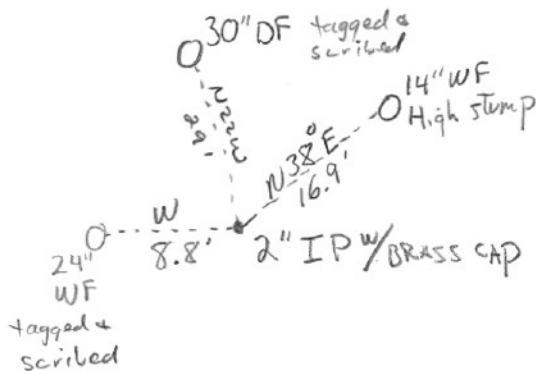 30" DF tagged &
scribed
14" WF
High stump
N22W
29'
N38°E
16.9'
W
8.8'
2" IP w/BRASS CAP
24"
WF
tagged &
scribed